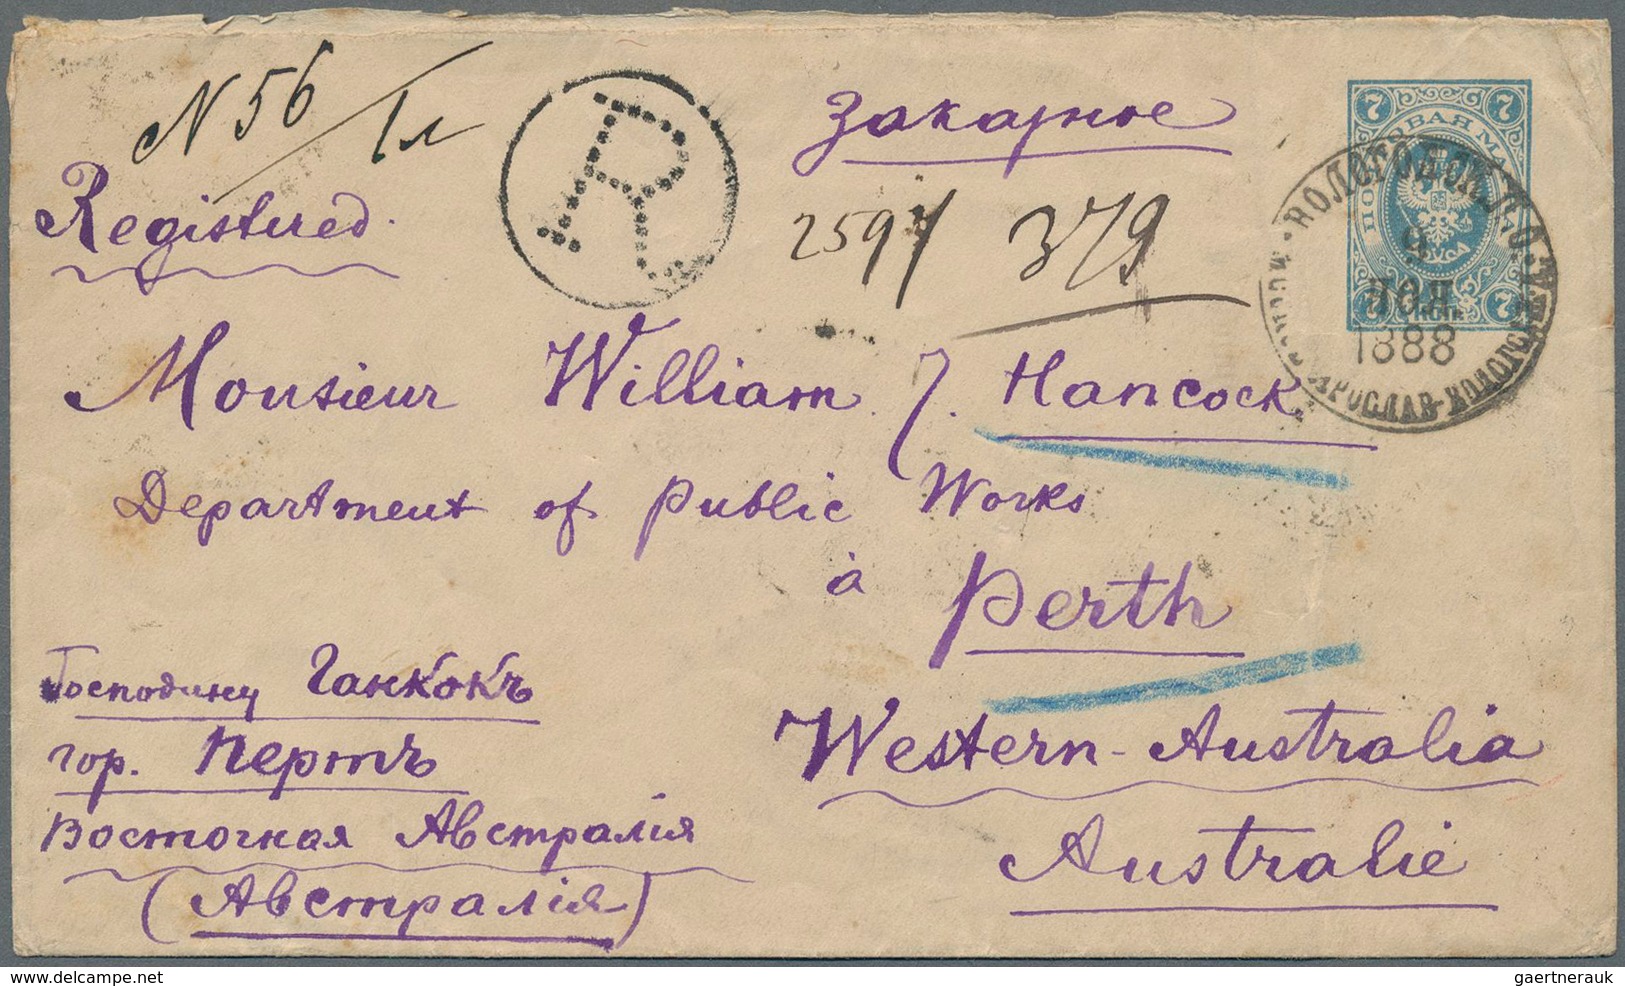 N 56/1л
R
Закарное
Registered.
2591
379
7 7
ПОЧТОВАЯ МА
ВОЛОГОД
9
НОЯ.
1888
ЯРОСЛАВ-ВОЛОГОД
7 7
Monsieur William J. Hancock.
Department of Public Works
à Perth
Western-Australia
Australie
Господину Ганкокъ
гор. Пертъ
Восточная Австралія
(Австралія)
www.delcampe.net
gaertnerauk